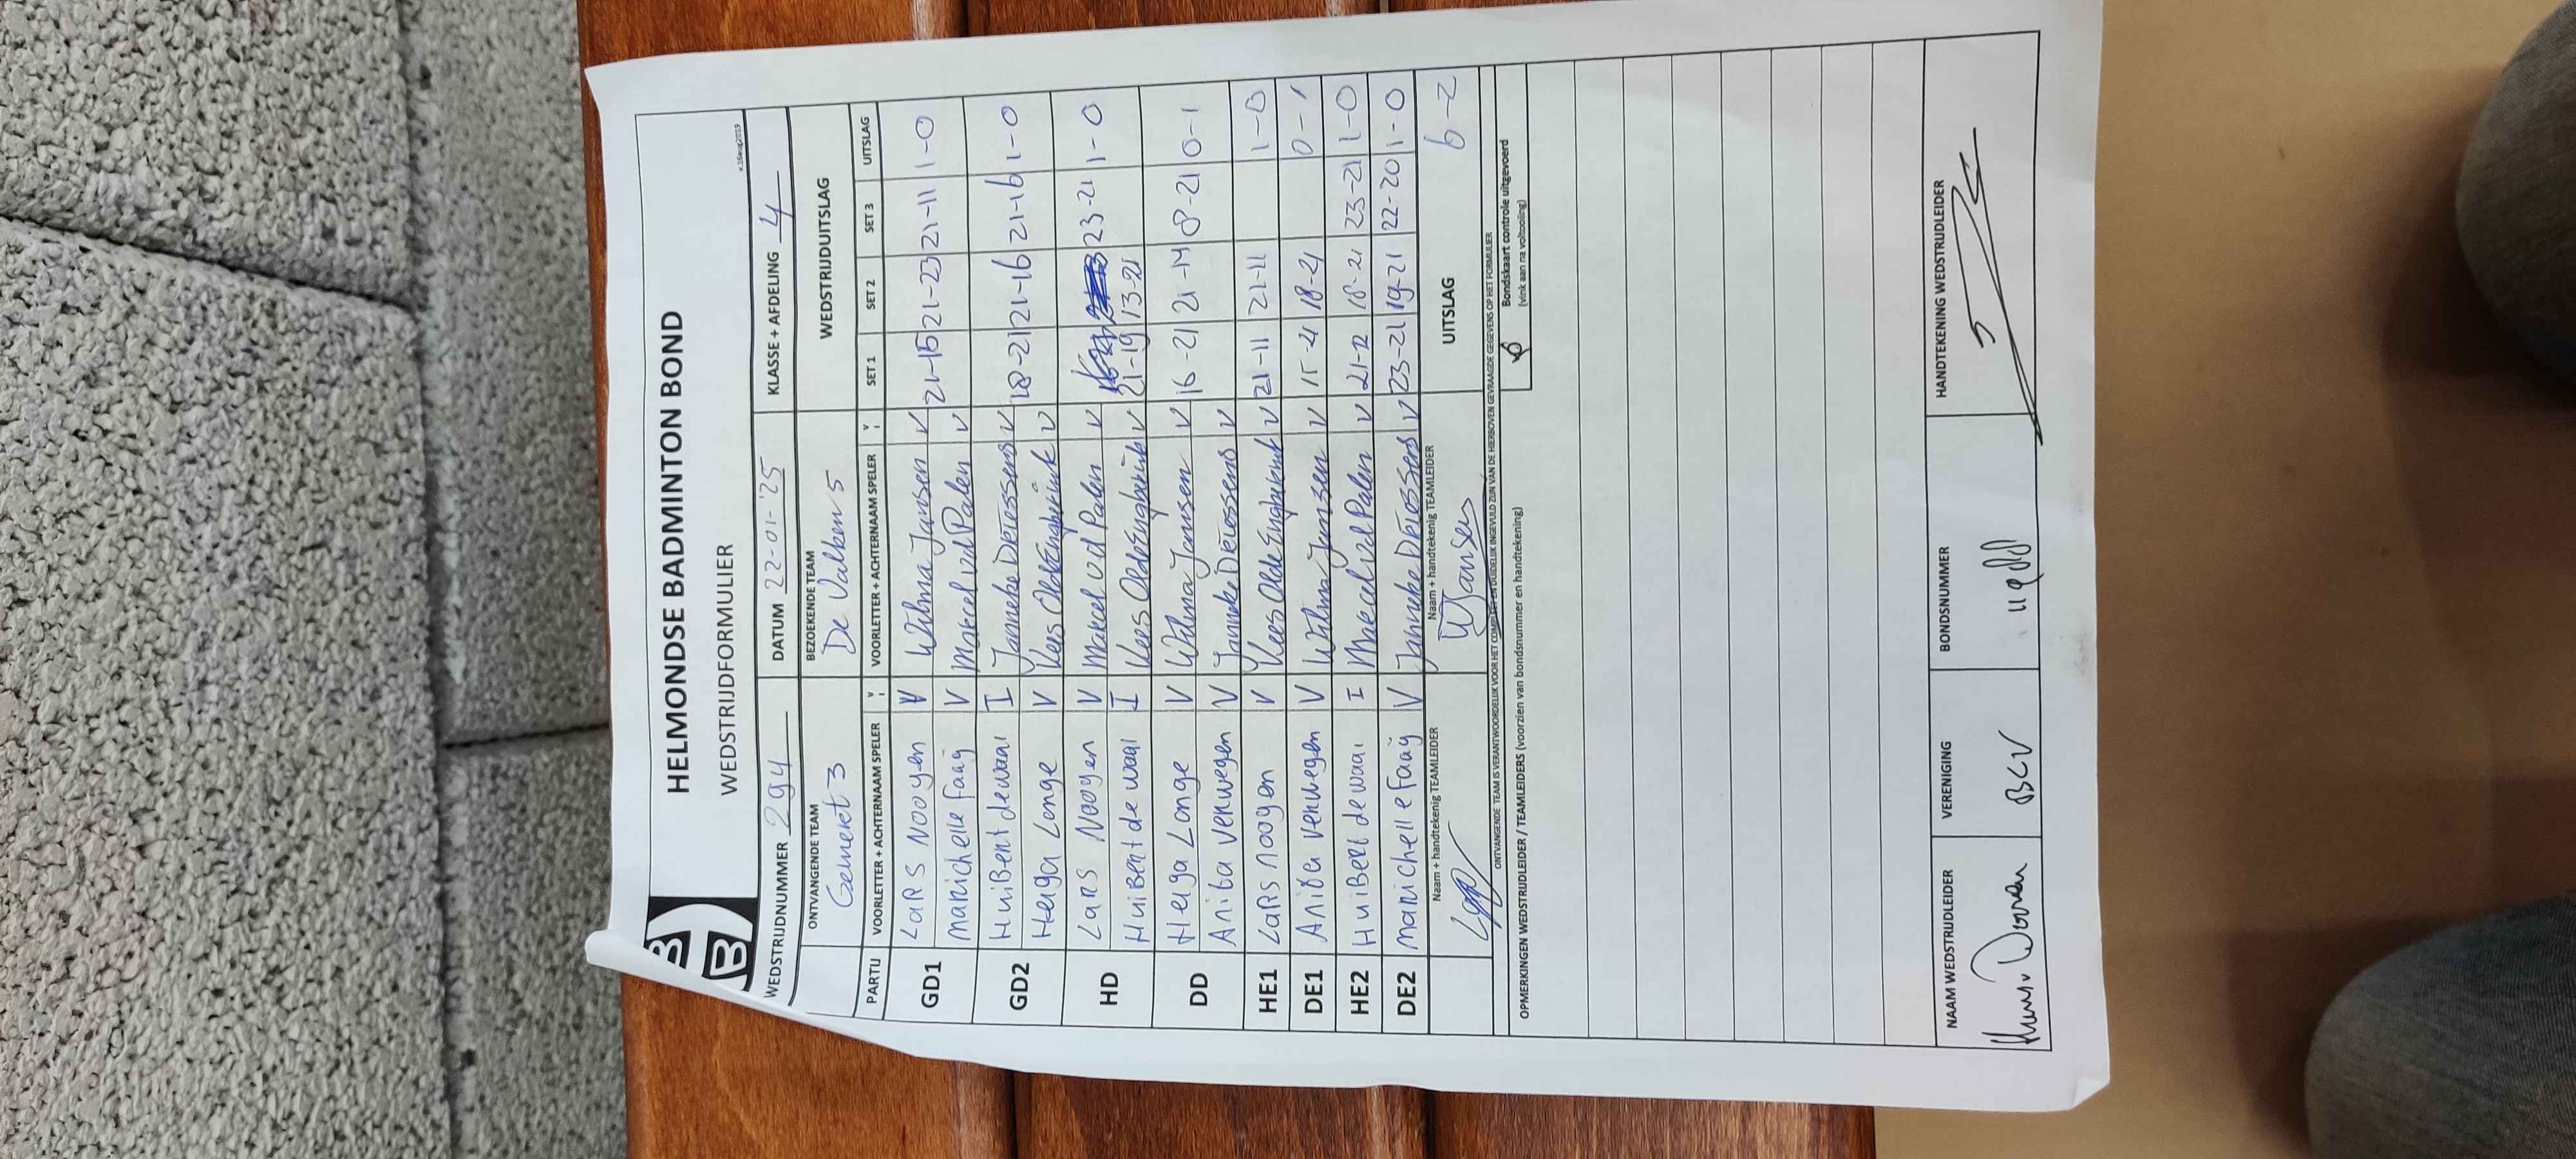 HELMONDSE BADMINTON BOND
WEDSTRIJDFORMULIER
v.16aug2019
WEDSTRIJDNUMMER 294 DATUM 22-01-'25 KLASSE + AFDELING 4
ONTVANGENDE TEAM BEZOEKENDE TEAM WEDSTRIJDUITSLAG
Gemert 3 De Valken 5
PARTIJ VOORLETTER + ACHTERNAAM SPELER V I VOORLETTER + ACHTERNAAM SPELER V I SET 1 SET 2 SET 3 UITSLAG
GD1 Lars Nooyen V Wilma Janssen V 21-15 21-23 21-11 1-0
Marichelle Faaij V Marcel vd Palen V
GD2 Huibert de waal I Janneke Driessens V 18-21 21-16 21-16 1-0
Helga Longe V Kees Olde Engberink V
HD Lars Nooyen V Marcel vd Palen V 23-21 1-0
Huibert de waal I Kees Olde Engberink V 21-19 13-21
DD Helga Longe V Wilma Janssen V 16-21 21-14 8-21 0-1
Anita Verwegen V Janneke Driessens V
HE1 Lars nooyen V Kees Olde Engberink V 21-11 21-11 1-0
DE1 Anita Verwegen V Wilma Janssen V 15-21 18-21 0-1
HE2 Huibert de waal I Marcel vd Palen V 21-12 18-21 23-21 1-0
DE2 Marichelle Faaij V Janneke Driessens V 23-21 19-21 22-20 1-0
Naam + handtekenig TEAMLEIDER Naam + handtekenig TEAMLEIDER UITSLAG 6-2
WJansen
ONTVANGENDE TEAM IS VERANTWOORDELIJK VOOR HET COMPLEET EN DUIDELIJK INGEVULD ZIJN VAN DE HIERBOVEN GEVRAAGDE GEGEVENS OP HET FORMULIER
OPMERKINGEN WEDSTRIJDLEIDER / TEAMLEIDERS (voorzien van bondsnummer en handtekening)
Bondskaart controle uitgevoerd
(vink aan na voltooiing)
NAAM WEDSTRIJDLEIDER VERENIGING BONDSNUMMER HANDTEKENING WEDSTRIJDLEIDER
BCV